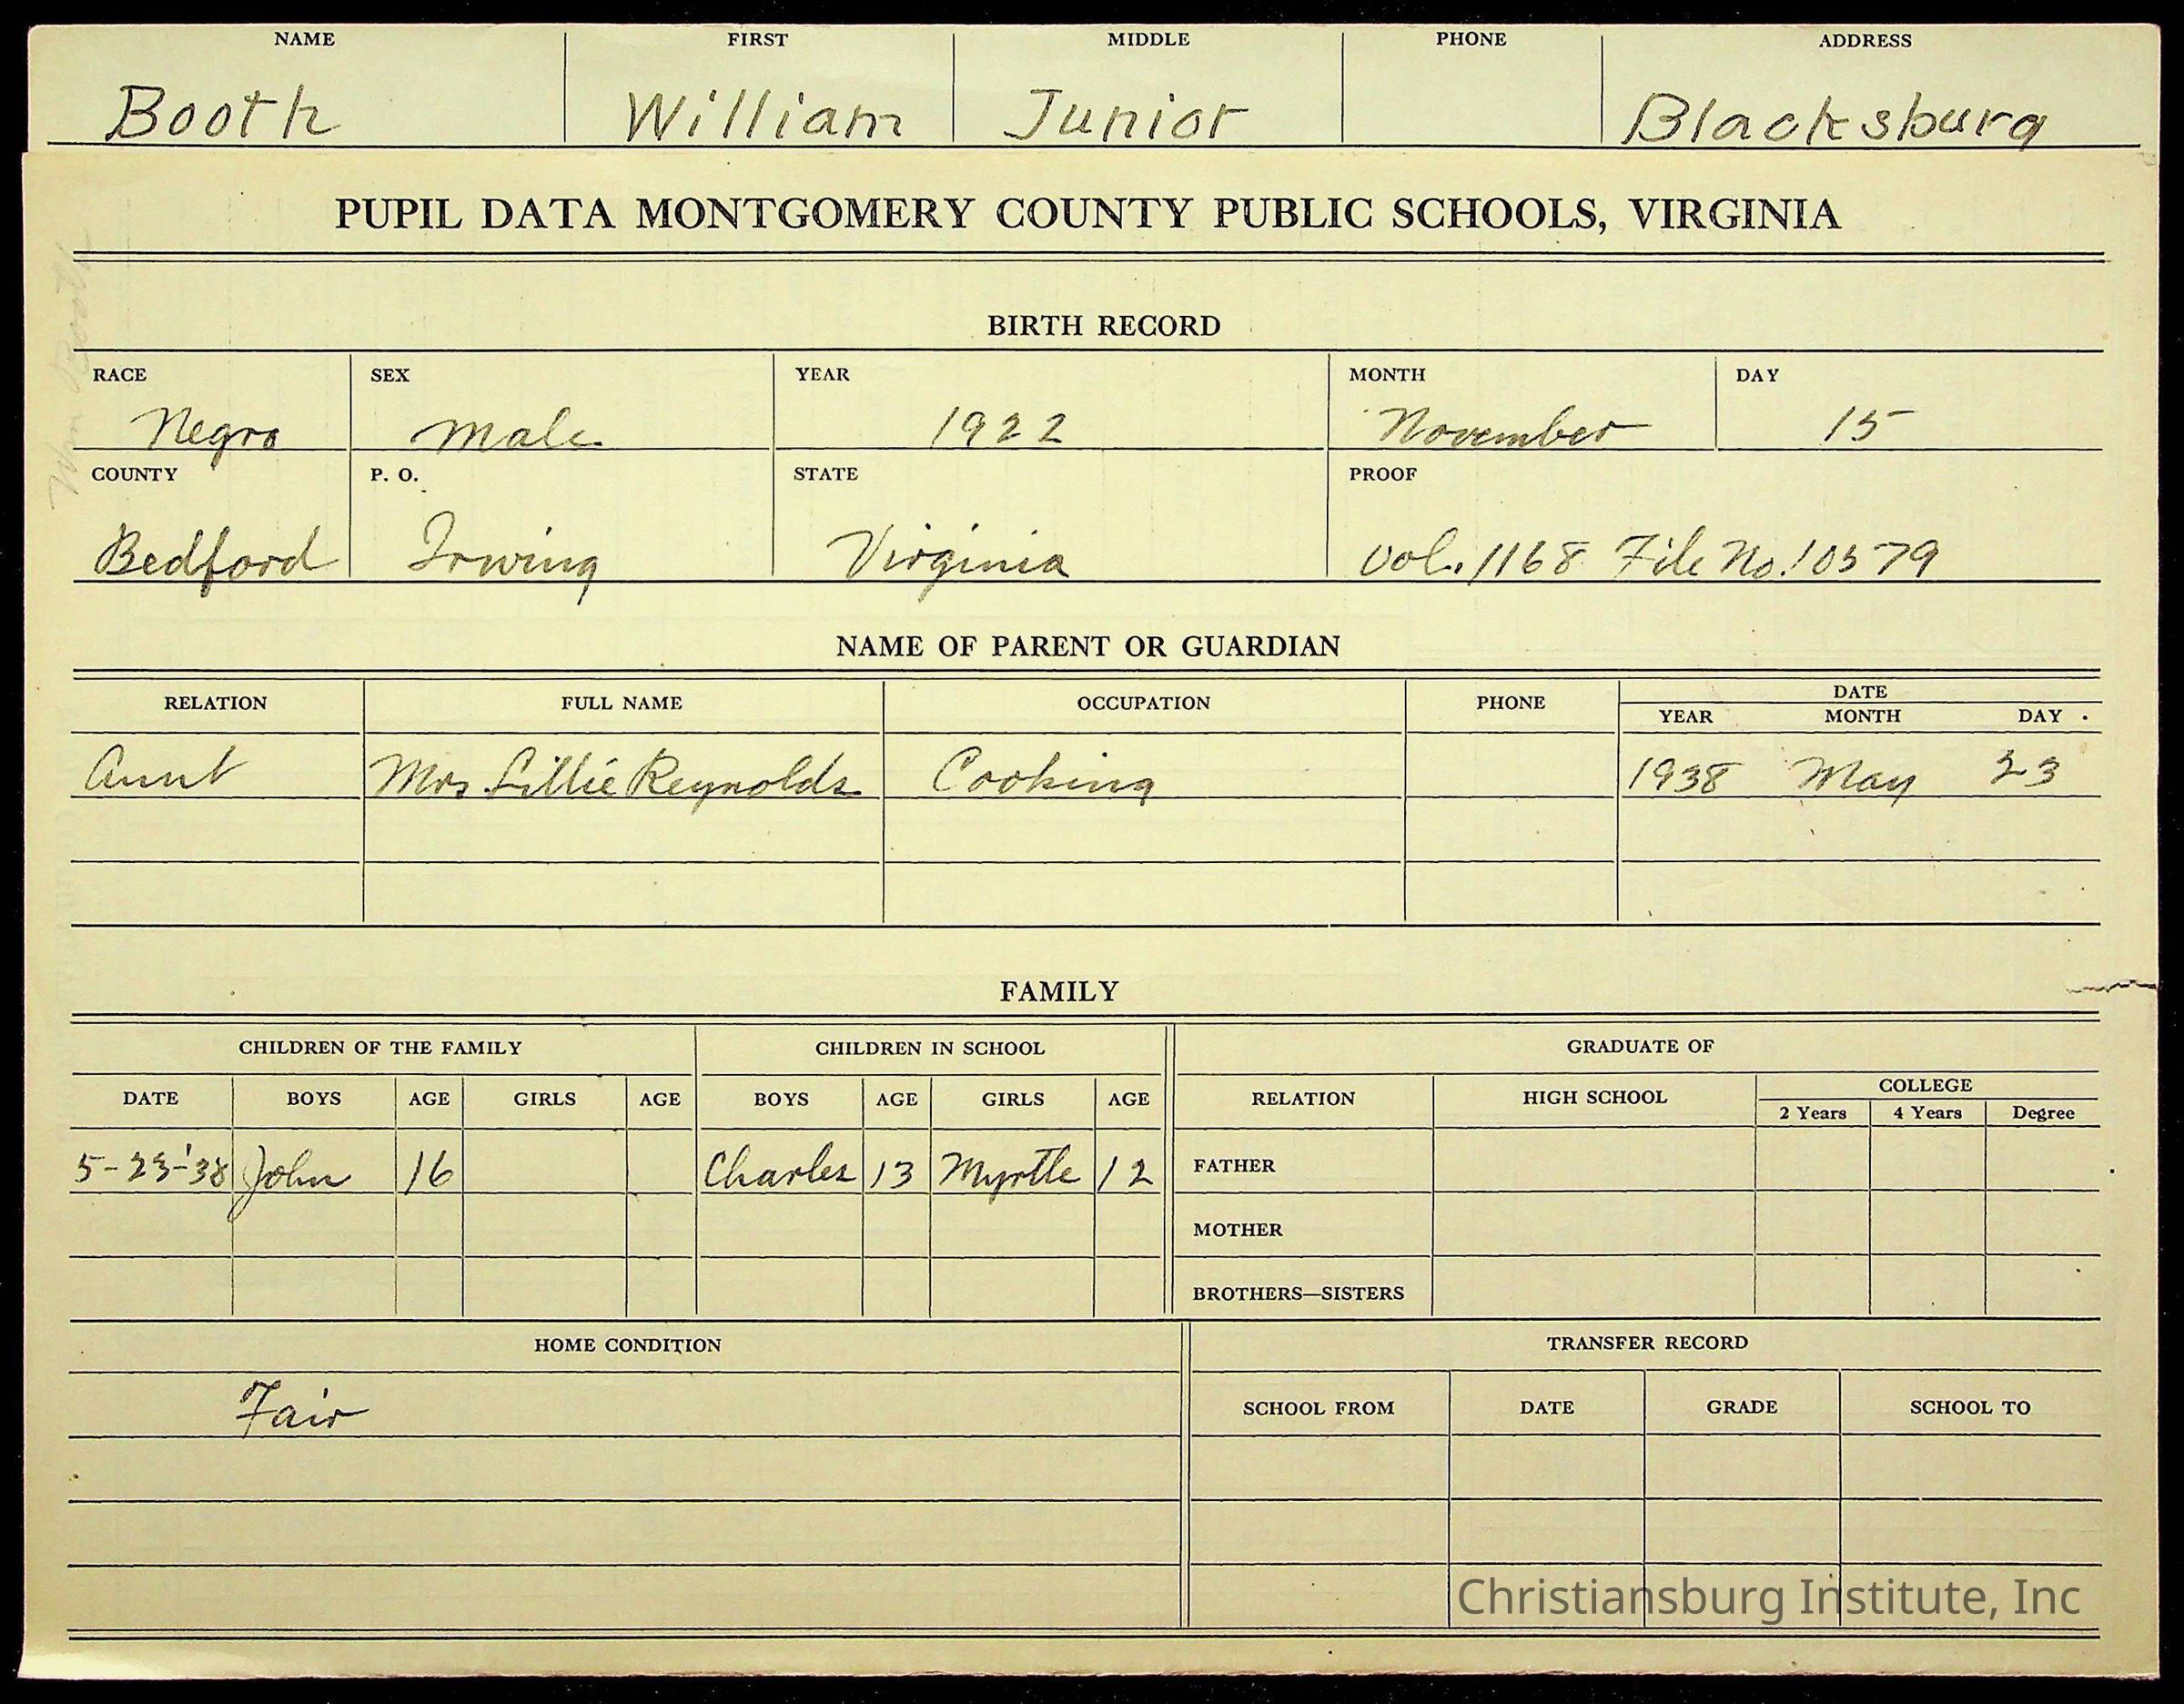 NAME FIRST MIDDLE PHONE ADDRESS
Booth William Junior Blacksburg
PUPIL DATA MONTGOMERY COUNTY PUBLIC SCHOOLS, VIRGINIA
BIRTH RECORD
RACE SEX YEAR MONTH DAY
Negro Male 1922 November 15
COUNTY P. O. STATE PROOF
Bedford Irwing Virginia Vol. 1168 File No. 10579
NAME OF PARENT OR GUARDIAN
RELATION FULL NAME OCCUPATION PHONE DATE
YEAR MONTH DAY
Aunt Mrs Lillie Reynolds Cooking 1938 May 23
FAMILY
CHILDREN OF THE FAMILY CHILDREN IN SCHOOL GRADUATE OF
DATE BOYS AGE GIRLS AGE BOYS AGE GIRLS AGE RELATION HIGH SCHOOL COLLEGE
2 Years 4 Years Degree
5-23-'38 John 16 Charles 13 Myrtle 12 FATHER
MOTHER
BROTHERS—SISTERS
HOME CONDITION TRANSFER RECORD
Fair
SCHOOL FROM DATE GRADE SCHOOL TO
Christiansburg Institute, Inc